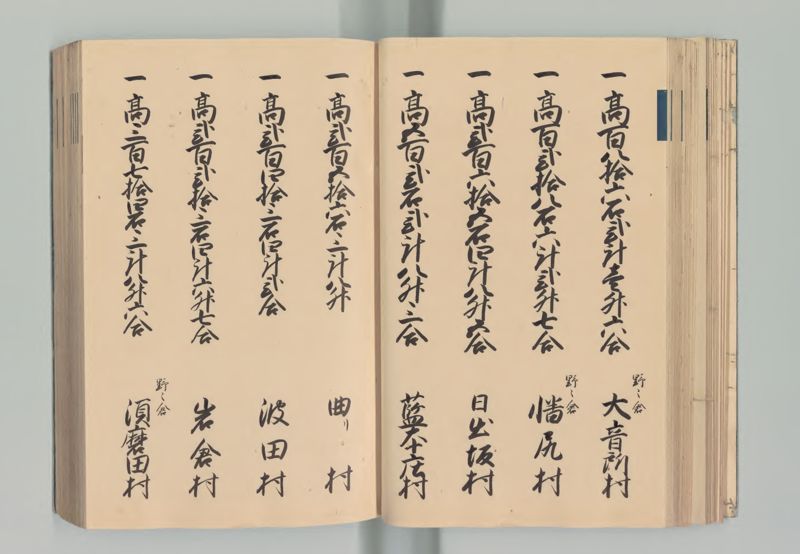 一 高百八拾六石弐斗壱升六合
野々倉
大音所村
一 高百弐拾八石六斗弐升七合
野々倉
幡尻村
一 高弐百六拾五石四斗八升五合
日出坂村
一 高五百弐石弐斗八升三合
藍本庄村
一 高弐百五拾六石三斗八升
曲り村
一 高弐百四拾三石四斗弐合
波田村
一 高弐百弐拾三石四斗六升七合
岩倉村
一 高三百七拾四石三斗八升六合
野々倉
須磨田村